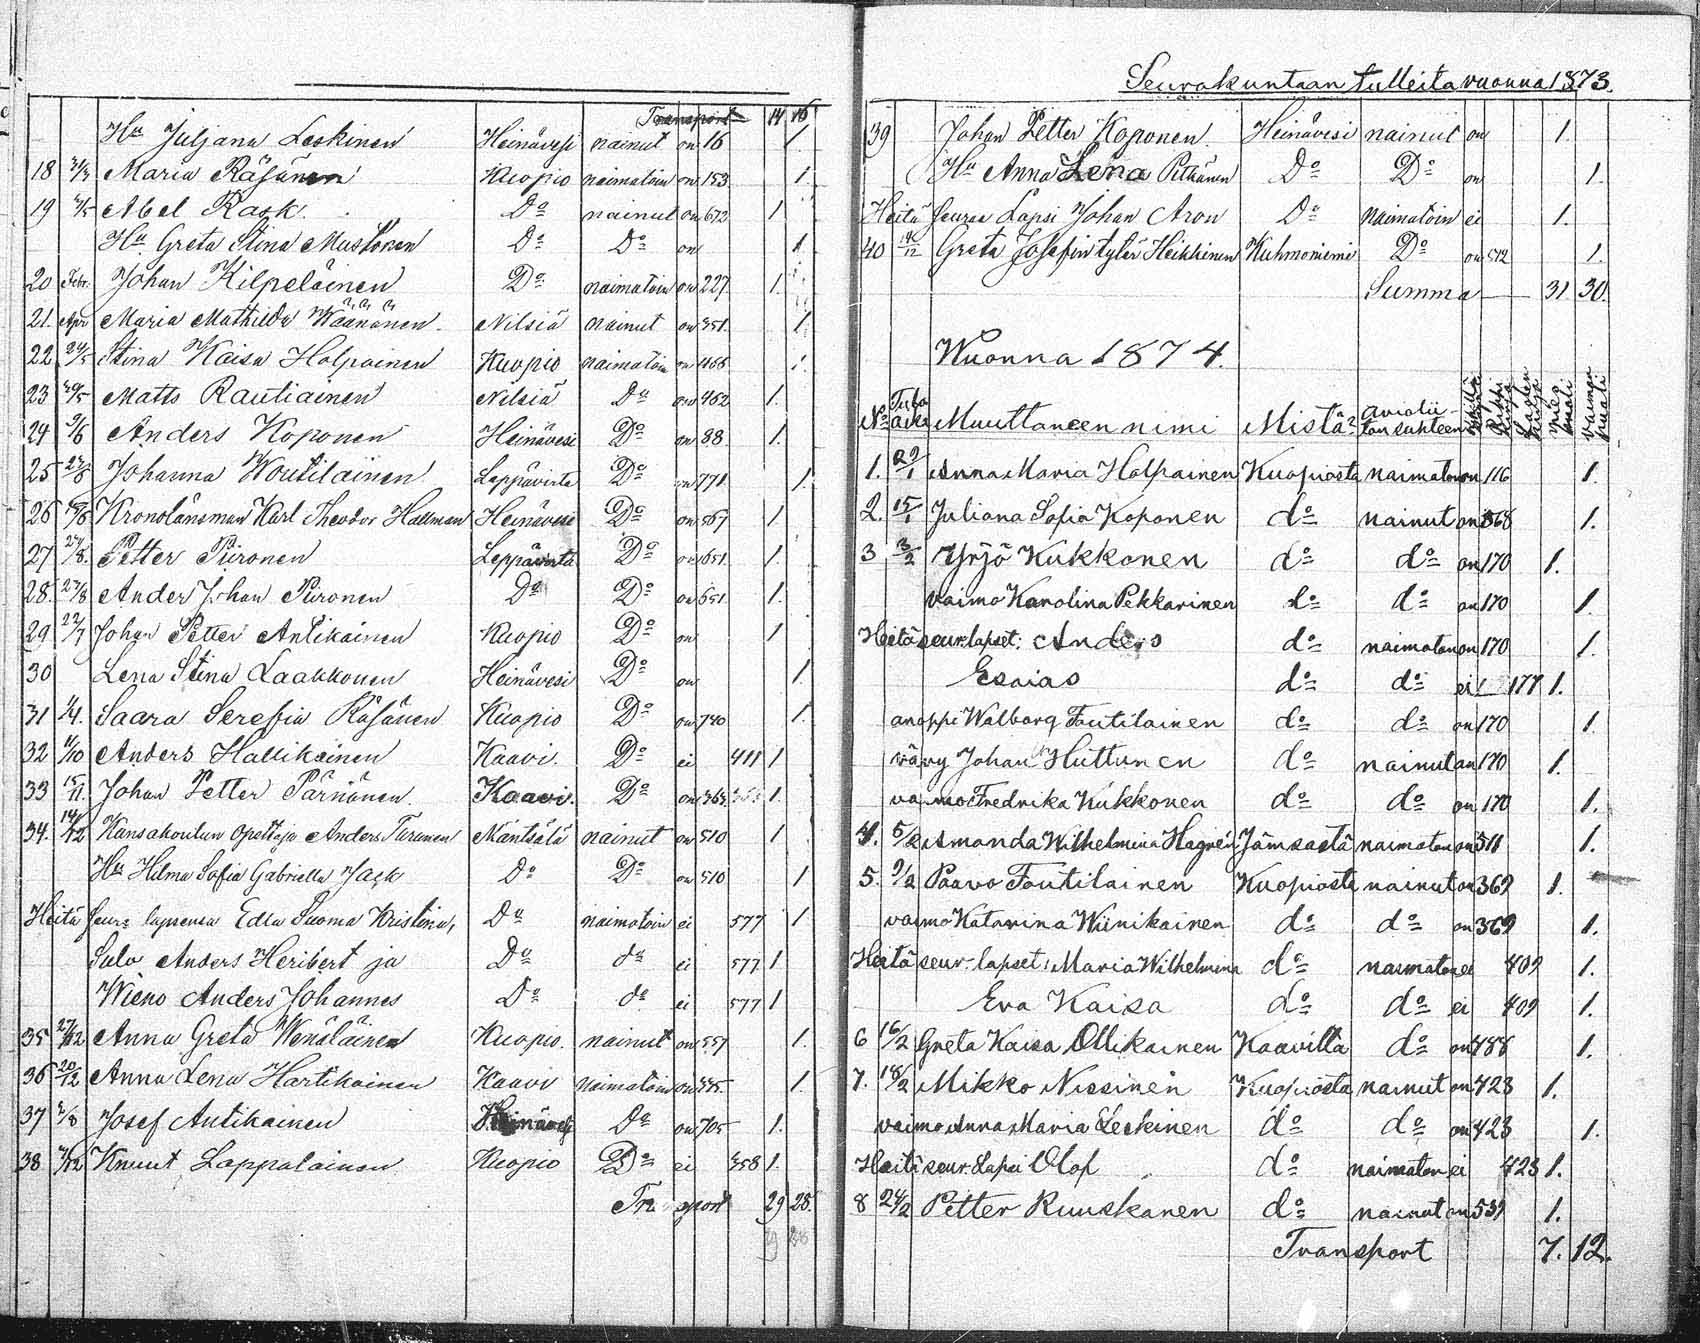 Transport 14 16
Hu Juljana Leskinen Heinävesi nainut on 16 1.
18 Maria Räsänen Kuopio naimatoin on 153 1.
19 Abel Rask Do nainut on 672 1
Hu Greta Stina Mustonen Do Do on 1
20 Febr. Johan Kilpeläinen Do naimatoin on 227. 1.
21. Apr Maria Mathilda Wäänänen. Nilsiä nainut on 351. 1.
22 24/5 Stina Kaisa Holpainen Kuopio naimatoin on 1.
23 Matts Rautiainen Nilsiä Do on 462 1.
24 9/6 Anders Koponen Heinävesi Do on 88 1.
25 Johanna Woutilainen Leppävirta Do on 771. 1.
26 Kronolänsman Karl Theodor Hallman Heinävesi Do on 567 1.
27 Petter Piironen Leppävirta Do on 651. 1.
28. 27/8 Ander Johan Piironen Do Do on 651. 1.
29 22/7 Johan Petter Antikainen Kuopio Do on 1
30 Lena Stina Laakkonen Heinävesi Do on 1
31 1/4. Saara Serefia Räsänen Kuopio Do on 740 1.
32 Anders Hallikainen Kaavi. Do ei 411 1
33 15/11. Johan Petter Pärnänen. Kaavi. Do on 363. 1.
34. 14/12 Kansakoulun opettaja Anders Turunen Mäntsälä nainut on 510 1
Hu Hilma Sofia Gabriella Jack Do Do on 510 1
Heitä seura lapsensa Edla Suoma Kristina, Do naimatoin ei 577 1
Sulo Anders Heribert ja Do do ei 577 1
Wieno Anders Johannes Do do ei 577 1
35 27/12 Anna Greta Wenäläinen Kuopio. nainut on 557 1.
36 20/12 Anna Lena Hartikainen Kaavi naimatoin on 1.
37 2/8 Josef Antikainen Heinävesi Do on 705 1.
38 Knuut Lappalainen Kuopio Do ei 358 1.
Transport 29 28.
29 28
Seurakuntaan tulleita vuonna 1873.
39 Johan Petter Koponen. Heinävesi nainut on 1.
Hu Anna Lena Pitkänen Do Do on 1.
Heitä seuraa Lapsi Johan Aron Do naimatoin ei 1.
40 Greta Josefin tytär Heikkinen Kuhmoniemi Do on 572 1.
Summa — 31 30.
Wuonna 1874.
No Tulo aika Muuttaneen nimi Mistä? aviolii- ton suhteen Rippi kirja Lasten kirja mies puoli vaimon puoli
1. 29/1 Anna Maria Holpainen Kuopiosta naimaton on 116 1.
2. 15/1 Juliana Sofia Koponen do nainut on 368 1.
3 3/2 Yrjö Kukkonen do do on 170 1.
vaimo Karolina Pekkarinen do do on 170 1
Heitä seur. lapset: Anders do naimaton on 170 1.
Esaias do do ei 177 1.
anoppi Walborg Toutilainen do do on 170 1
vävy Johan Huttunen do nainut on 170 1.
vaimo Fredrika Kukkonen do do on 170 1.
4. 5/2 Amanda Wilhelmina Hagrén. Jämsästä naimaton on 511 1.
5. 9/2 Paavo Toutilainen Kuopiosta nainut on 369 1.
vaimo Katarina Wiinikainen do do on 369 1.
Heitä seur. lapset: Maria Wilhelmina do naimaton ei 409 1.
Eva Kaisa do do ei 409 1.
6 16/2 Greta Kaisa Ollikainen Kaavilta do on 488 1.
7. 18/2 Mikko Nissinen Kuopiosta nainut on 423 1.
vaimo Anna Maria Leskinen do do on 423 1.
Heitä seur. Lapsi Olof do naimaton ei 423 1.
8 24/2 Petter Ruuskanen do nainut on 539 1.
Transport 7. 12.